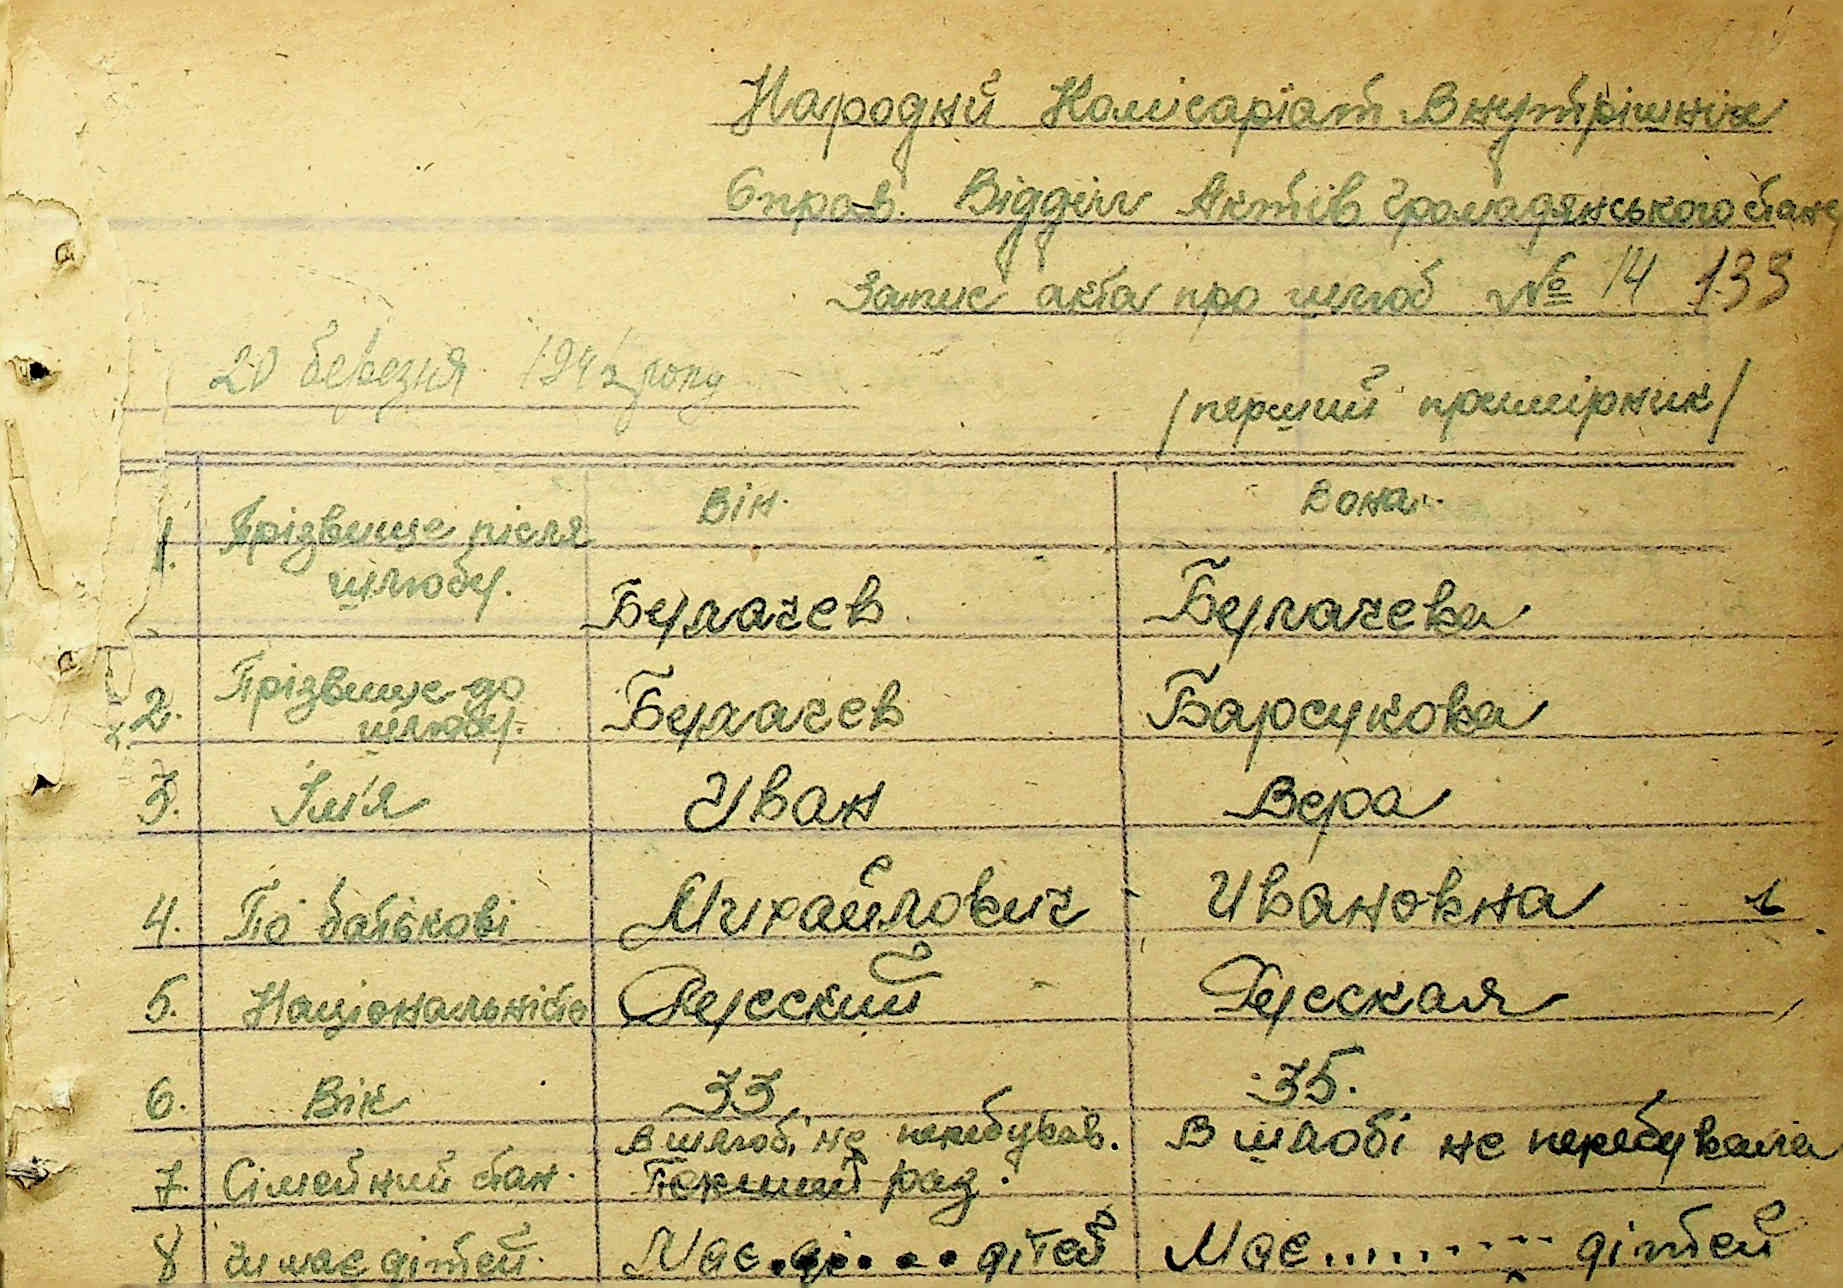 Народний Комісаріат Внутрішніх
Справ. Відділ Актів громадянського стану
Запис акта про шлюб № 14 133
20 березня 1942 року
/перший примірник/
Він. Вона.
1. Прізвище після
шлюбу.
Булачев Булачева
2. Прізвище до
шлюбу.
Булачев Барсукова
3. Ім'я Иван Вера
4. По батькові Михайлович Ивановна
5. Національність Русский Русская
6. Вік 33 35.
7. Сімейний стан. В шлюбі не перебував. В шлюбі не перебувала
Перший раз.
8 Чи має дітей. Має дітей Має......... дітей